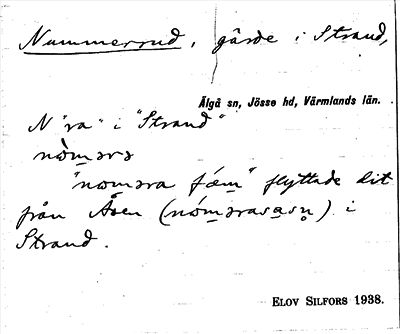 Nummerrud, gärde i Strand,
Älgå sn, Jösse hd, Värmlands län.
N "ra" i "Strand"
nòm̲ərə
"nom̲əra fǽm̲" flyttade dit
från Åsen (nóm̲ərasa̲sn̥) i
Strand.
ELOV SILFORS 1938.